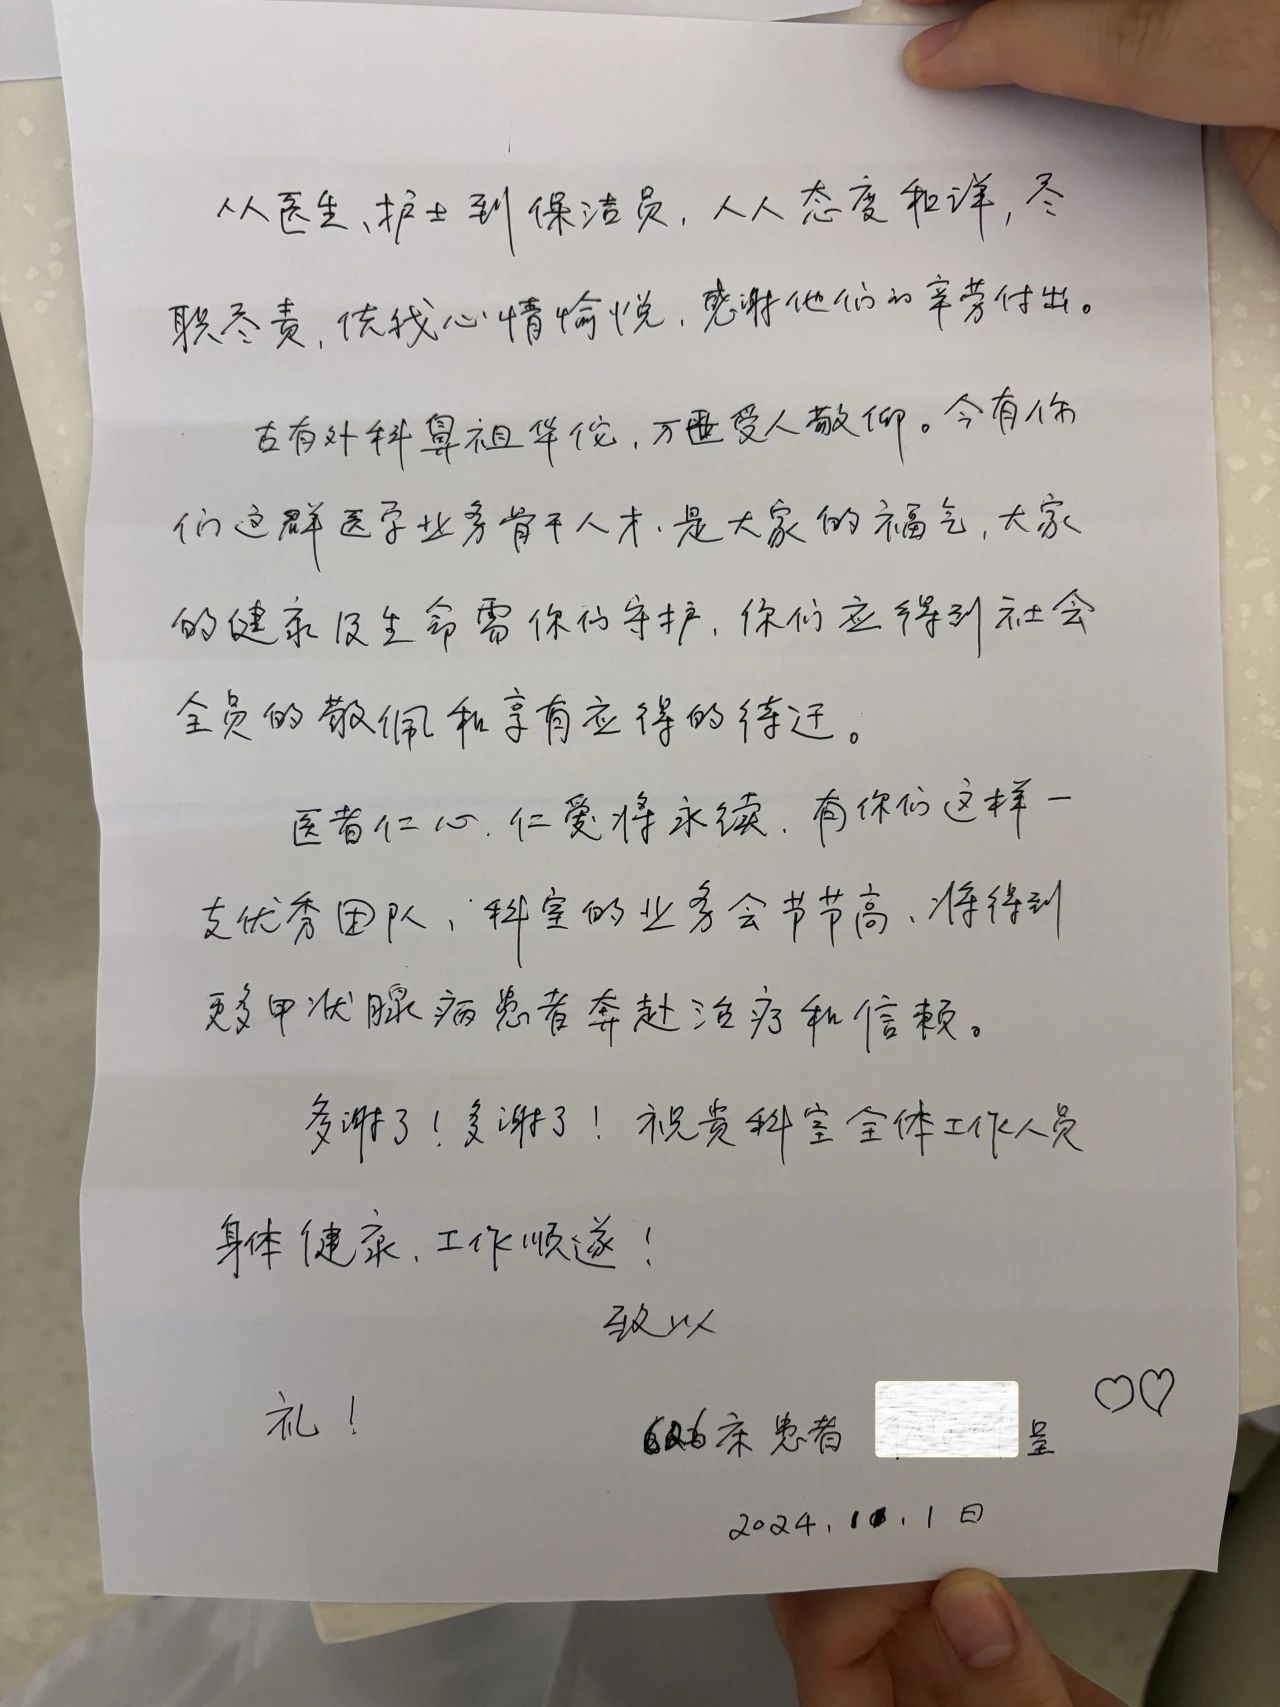 从医生、护士到保洁员，人人态度和详，尽
职尽责，使我心情愉悦，感谢他们的辛劳付出。
古有外科鼻祖华佗，万世受人敬仰。今有你
们这群医学业务骨干人才，是大家的福气，大家
的健康及生命需你们守护，你们应得到社会
全员的敬佩和享有应得的待迂。
医者仁心，仁爱将永续，有你们这样一
支优秀团队，科室的业务会节节高，将得到
更多甲状腺病患者奔赴治疗和信赖。
多谢了！多谢了！祝贵科室全体工作人员
身体健康，工作顺遂！
致以
礼！
626床患者 呈
2024.
1日